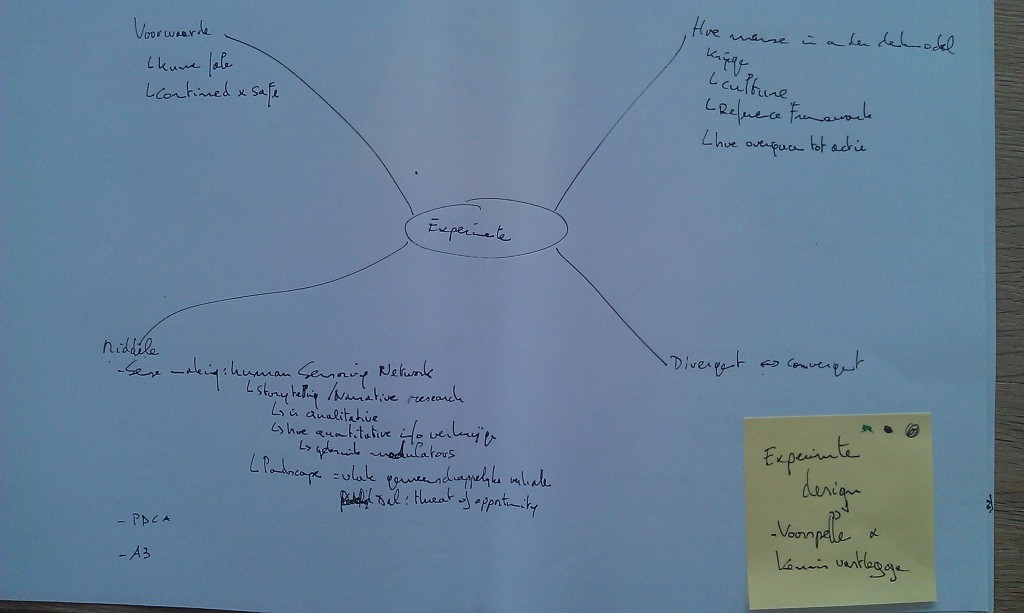 Voorwaarde
↳ kunne fale
↳ Contained & Safe
Hoe mense in ander denkmodel
krijge
↳ culture
↳ Reference Framework
↳ hoe overgaan tot actie
Experimente
Middele
- Sense making: human Sensoring Network
↳ Storytelling / Narrative research
↳ is qualitative
↳ hoe quantitative info verkrijge
↳ modulators
↳ Landscape = gemeenschappelijke
: threat of opportunity
- PDCA
- A3
Divergent ⇔ convergent
Experimente
design
- Voorspelle &
kennis vastlegge